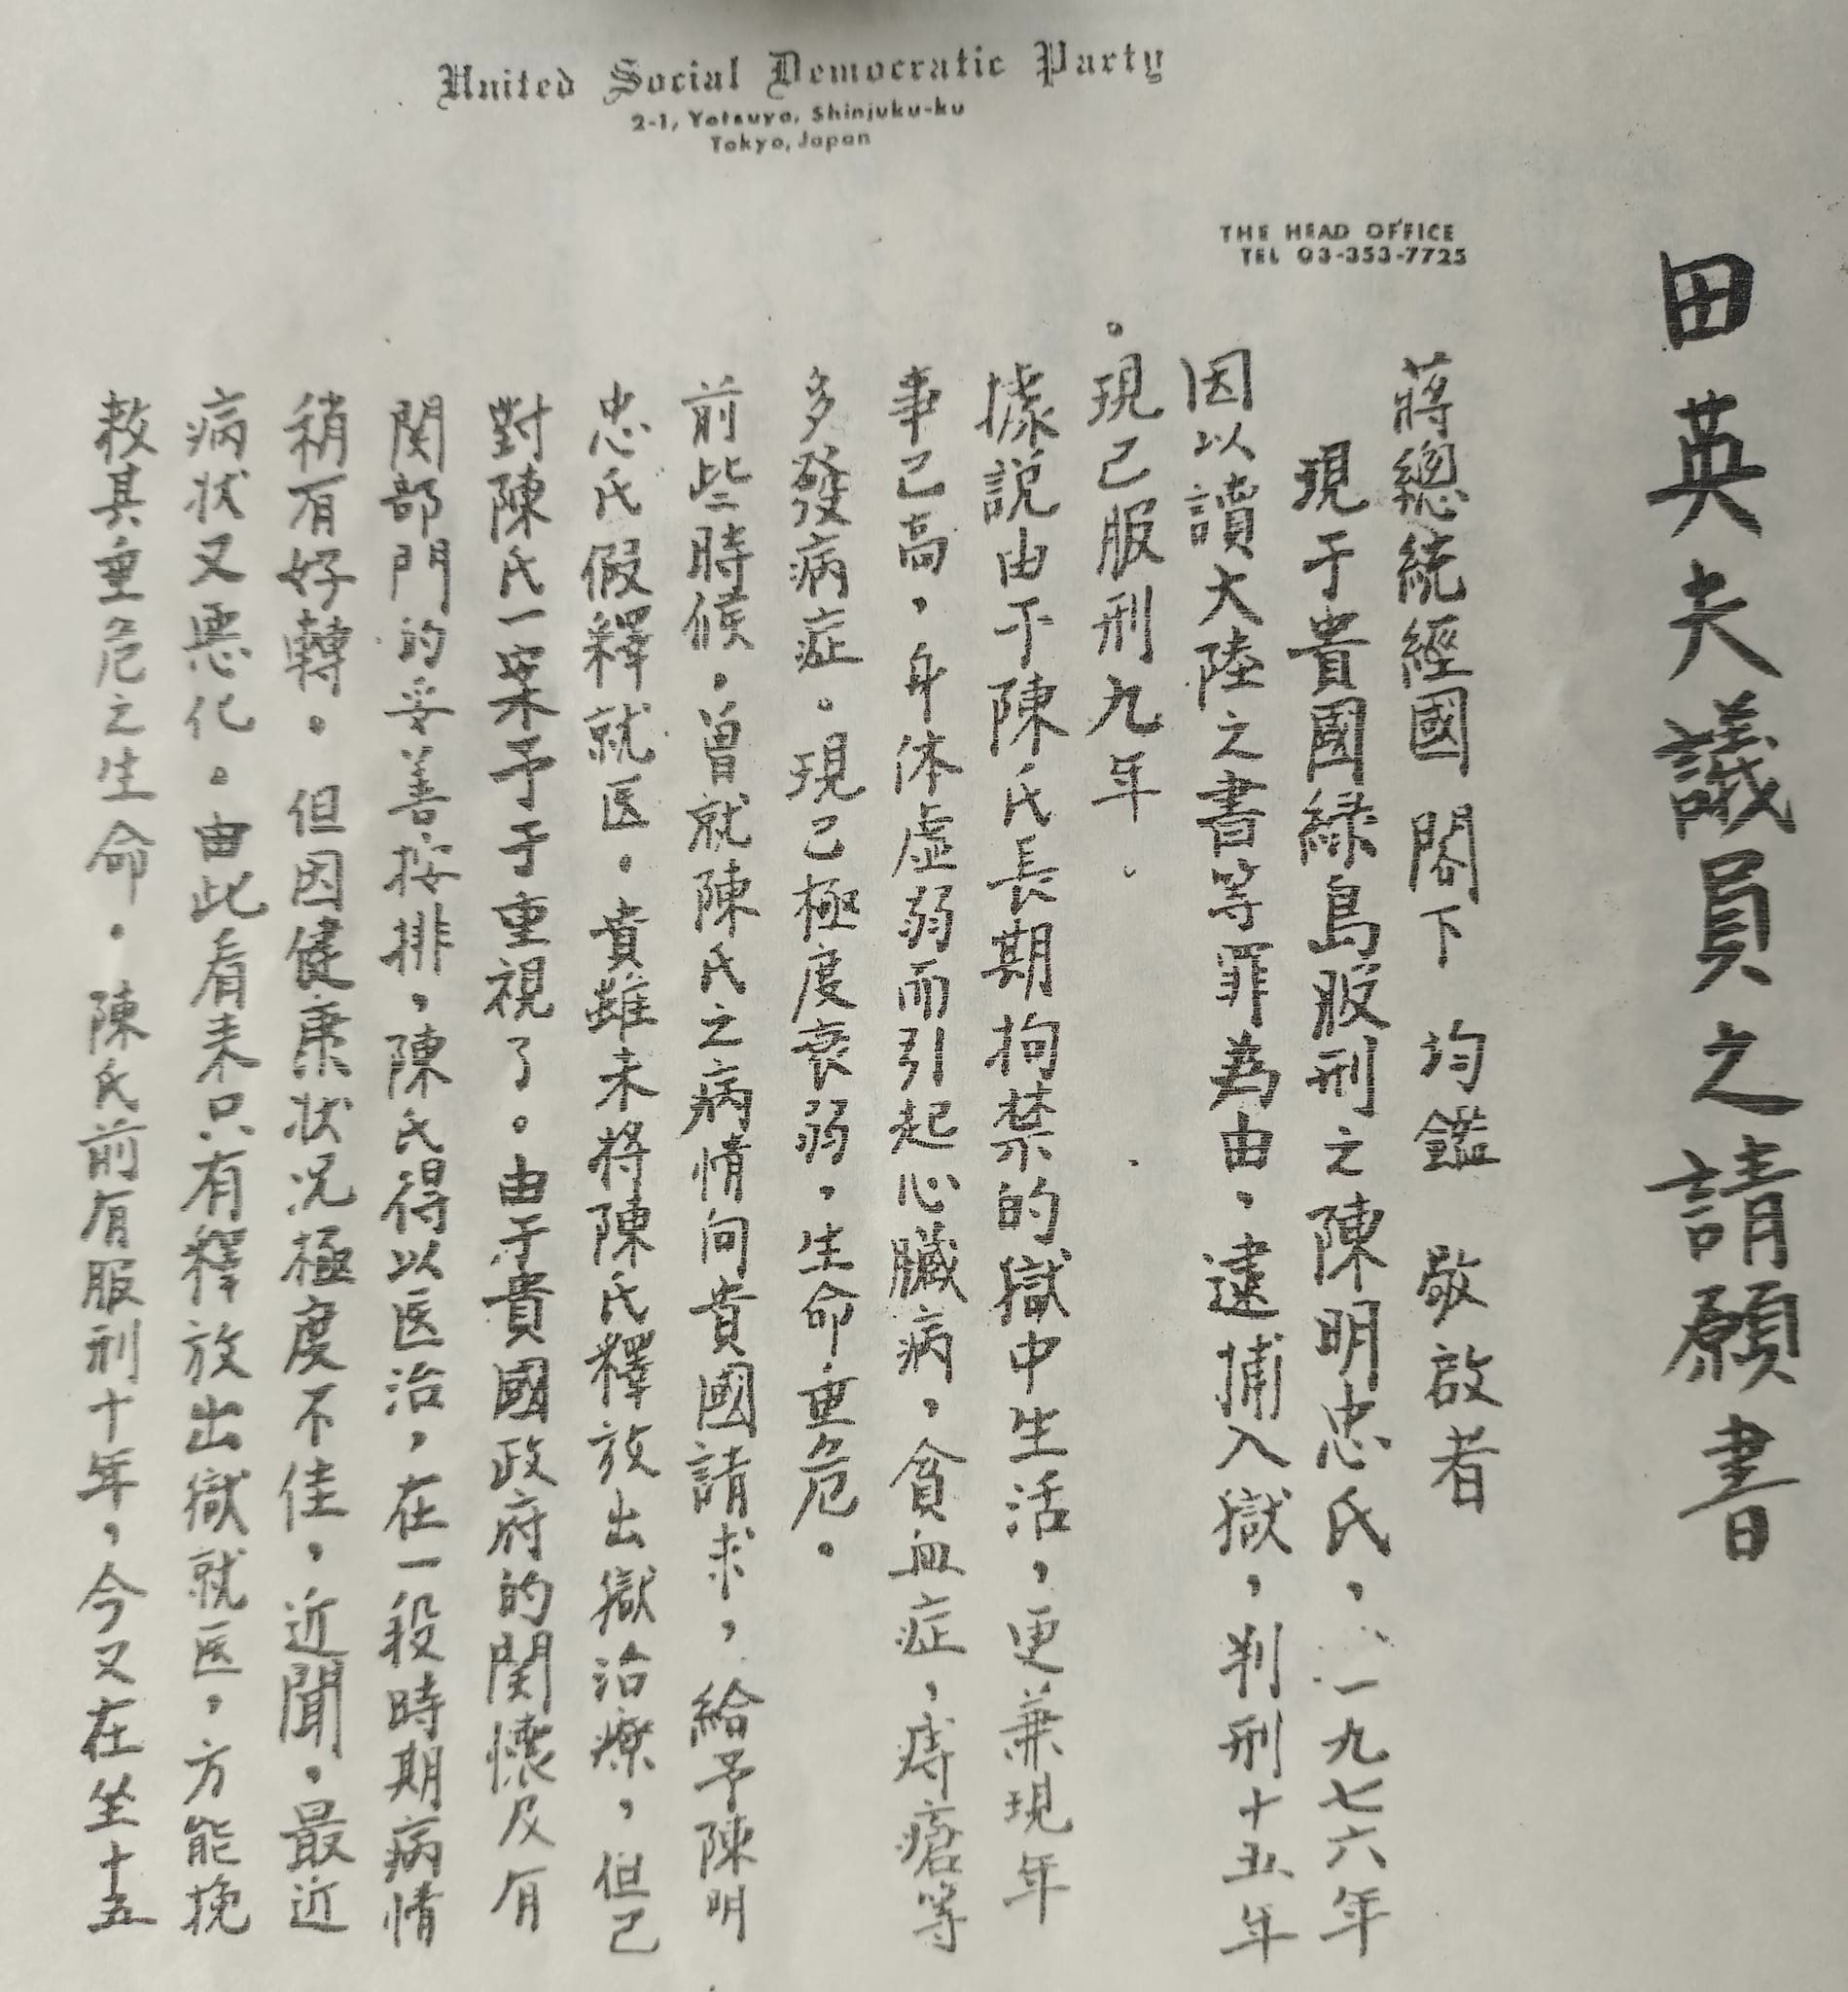 United Social Democratic Party
2-1, Yotsuya, Shinjuku-ku
Tokyo, Japan
THE HEAD OFFICE
TEL 03-353-7725
田英夫議員之請願書
蔣總統經國 閣下 均鑑 敬啟者
現于貴國緑島服刑之陳明忠氏，一九七六年
因以讀大陸之書等罪為由，逮捕入獄，判刑十五年
。現已服刑九年。
據説由于陳氏長期拘禁的獄中生活，更兼現年
事已高，身体虛弱而引起心臟病，貧血症，痔瘡等
多發病症。現已極度衰弱，生命重危。
前些時候，曾就陳氏之病情向貴國請求，給予陳明
忠氏假釋就医。貴雖未將陳氏釋放出獄治療，但已
對陳氏一案予于重視了。由于貴國政府的関懷及有
関部門的妥善按排，陳氏得以医治，在一段時期病情
稍有好轉。但因健康状况極度不佳，近聞，最近
病状又悪化。由此看来只有釋放出獄就医，方能挽
救其重危之生命。陳氏前有服刑十年，今又在坐十五